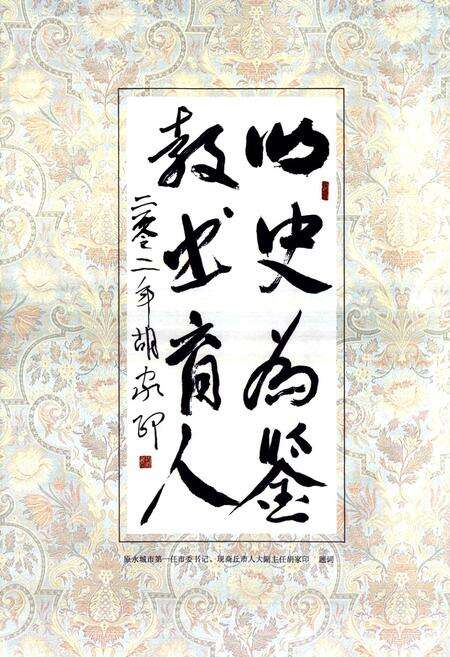 以史为鉴
教书育人
二零零二年胡家印
原永城市第一任市委书记、现商丘市人大副主任胡家印 题词